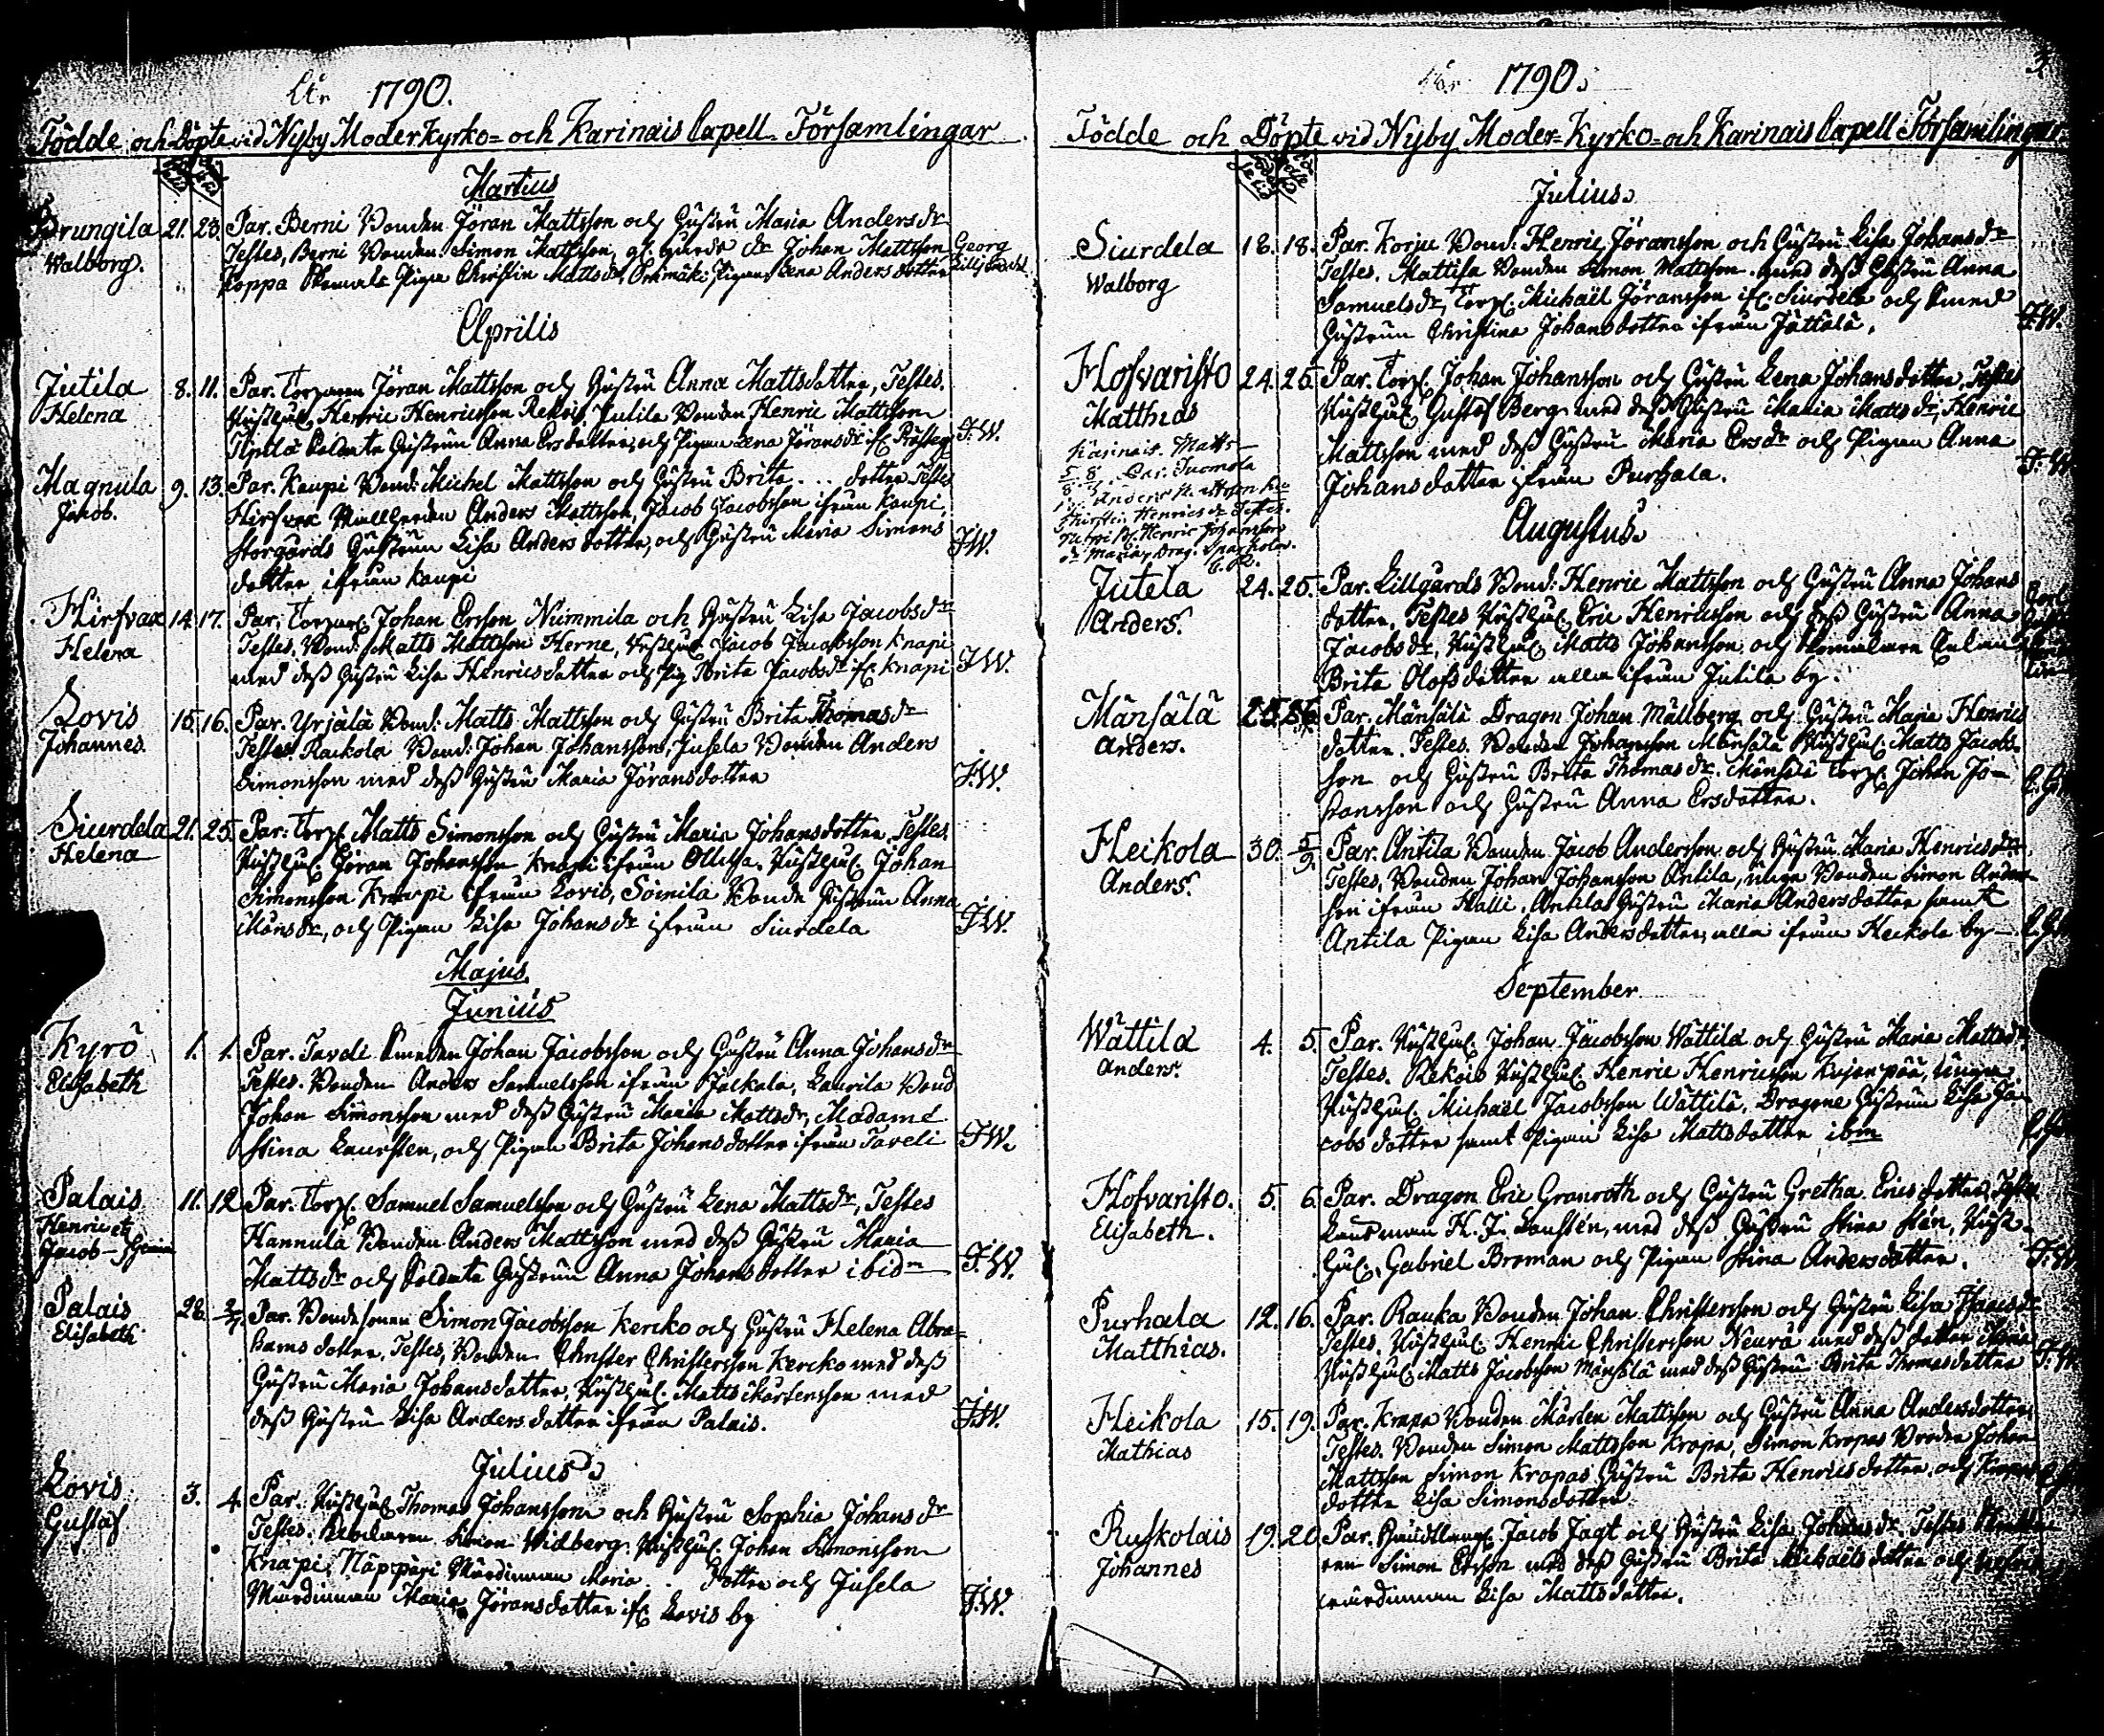 År 1790.
Födde och Döpte vid Nyby Moderkyrko- och Karinais Capell Församlingar
Martius
Prungila 21. 23. Par. Berni Bonden Jöran Mattsson och Hustru Maria Andersdr
Walborg. Testes, Berni Bonden Simon Mattsson, Johan Mattsson Georg
Koppa Pigan Christin Mattsdr, Pigan Lena Andersdotter
Aprilis
Jutila 8. 11. Par. Torparen Jöran Mattsson och Hustru Anna Mattsdotter, Testes.
Helena Henric Henricsson Rekois, Jutila Bonden Henric Mattsson
Soldate Hustrun Anna Ersdotter, och Pigan Lena Jöransdr J.W.
Magnula 9. 13. Par. Kaupi Bond: Michel Mattsson och Hustru Brita ... dotter Testes
Jacob. Hirfvax Anders Mattsson, Jacob Jacobsson ifrån Kaupi,
Storgårds Hustrun Lisa Andersdotter, och Hustru Maria Simons
dotter ifrån Kaupi J.W.
Hirfvax 14. 17. Par. Torpar: Johan Ersson Nummila och Hustru Lisa Jacobsdr
Helena Testes, Bond: Matts Mattsson Herne, Jacob Jacobsson Knapi
med dess Hustru Lisa Henricsdotter och Pig Brita Jacobsdr if: Knapi J.W.
Lovis 15. 16. Par. Yrjälä Bond: Matts Mattsson och Hustru Brita Thomasdr
Johannes. Testes. Rackola Bond: Johan Johansson, Jusela Bonden Anders
Simonsson med dess Hustru Maria Jöransdotter J.W.
Siurdela 21. 25. Par. Torp: Matts Simonsson och Hustru Maria Johansdotter Testes.
Helena Jöran Johansson Knapi ifrån Ollila. Johan
Simonsson Knapi ifrån Lovis, Soinila Bonde Hustrun Anna
Månsdr, och Pigan Lisa Johansdr ifrån Siurdela J.W.
Majus
Junius
Kyrö 1. 1. Par. Taveli Smeden Johan Jacobsson och Hustru Anna Johansdr
Elisabeth Testes. Bonden Anders Samuelsson ifrån Jalkala, Laurila Bond
Johan Simonsson med dess Hustru Maria Mattsdr, Madame
Stina och Pigan Brita Johansdotter ifrån Taveli J.W.
Palais 11. 12 Par. Torp. Samuel Samuelsson och Hustru Lena Mattsdr, Testes
Henric et Hannula Bonden Anders Mattsson med dess Hustru Maria
Jacob - Mattsdr och Soldate Hustrun Anna Johansdotter ibidm J.W.
Palais 28. 2/7 Par. Bondesonen Simon Jacobsson Kercko och Hustru Helena Abra=
Elisabeth hams dotter, Testes, Bonden Christer Christersson Kercko med dess
Hustru Maria Johansdotter, Matts Mårtensson med
dess Hustru Lisa Andersdotter ifrån Palais. J.W.
Julius
Lovis 3. 4. Par. Thomas Johansson och Hustru Sophia Johansdr
Gustaf Testes. Widberg. Johan Simonsson
Knapi, Näppäri Maria .. dotter och Jusela
Maria Jöransdotter if: Lovis by J.W.
År 1790. 3.
Födde och Döpte vid Nyby Moder-Kyrko- och Karinais Capell Församlingar
Julius
Siurdela 18. 18. Par. Korju Bond: Henric Jöransson och Hustru Lisa Johansdr
Walborg Testes. Mattila Bonden Simon Mattsson med dess Hustru Anna
Samuelsdr, Torp: Michaël Jöransson if: Siurdela och Smed
Hustrun Christina Johansdotter ifrån Jättälä. J.W.
Hofvaristo 24. 25. Par. Torp. Johan Johansson och Hustru Lena Johansdotter, Testes
Matthias Gustaf Berg med dess Hustru Maria Mattsdr, Henric
Mattsson med dess Hustru Maria Ersdr och Pigan Anna
Johansdotter ifrån Purhala. J.W.
Karinais. Matts
5. 8. Par. Suomola
Anders
Henricsdr Testes.
Henric Johansson
Maria, Drag.
Augustus
Jutela 24. 25. Par. Lillgårds Bond: Henric Mattsson och Hustru Anna Johans
Anders. dotter, Testes Eric Henricsson och dess Hustru Anna
Jacobsdr, Matts Johansson och
Brita Olofsdotter alla ifrån Jutila by.
Mänsälä 25. Par. Mänsälä Dragon Johan Mällberg och Hustru Maria Henrics
Anders. dotter. Testes. Bonden Johansson Mänsälä Matts Jacobs-
son och Hustru Brita Thomasdr. Mänsälä Torp. Johan Jo-
hansson och Hustru Anna Ersdotter.
Heikola 30. 5/9 Par. Antila Bonden Jacob Andersson och Hustru Maria Henricsdr
Anders. Testes, Bonden Johan Johansson Antila, unge Bonden Simon Anders-
son ifrån Halli, Antila Hustru Maria Andersdotter samt
Antila Pigan Lisa Andersdotter, alla ifrån Heikola by
September
Wättilä 4. 5. Par. Johan Jacobsson Wättilä och Hustru Maria Mattsdr
Anders. Testes. Rekois Henric Henricsson unge
Michaël Jacobsson Wättilä, Dragone Hustrun Lisa Ja-
cobsdotter samt Pigan Lisa Mattsdotter ibm
Hofvaristo. 5. 6. Par. Dragon Eric Granroth och Hustru Gretha Ericsdotter, Testes
Elisabeth. med dess Hustru Stina
Gabriel Broman och Pigan Stina Andersdotter. J.W.
Purhala 12. 16. Par. Rauka Bonden Johan Christersson och Hustru Lisa
Matthias. Testes. Henric Christersson Neurä med dess dotter Maria
Matts Jacobsson Mänsälä med dess Hustru Brita Thomasdotter J.W.
Heikola 15. 19. Par. Krapa Bonden Mårten Mattsson och Hustru Anna Andersdotter
Mathias Testes. Bonden Simon Mattsson Krapa, Simon Krapas Broder Johan
Mattsson Simon Krapas Hustru Brita Henricsdotter, och
dotter Lisa Simonsdotter
Ruskolais 19. 20. Par. Jacob Jagt och Hustru Lisa Johansdr Testes
Johannes Simon Ersson med dess Hustru Brita Michaëlsdotter och
Lisa Mattsdotter.